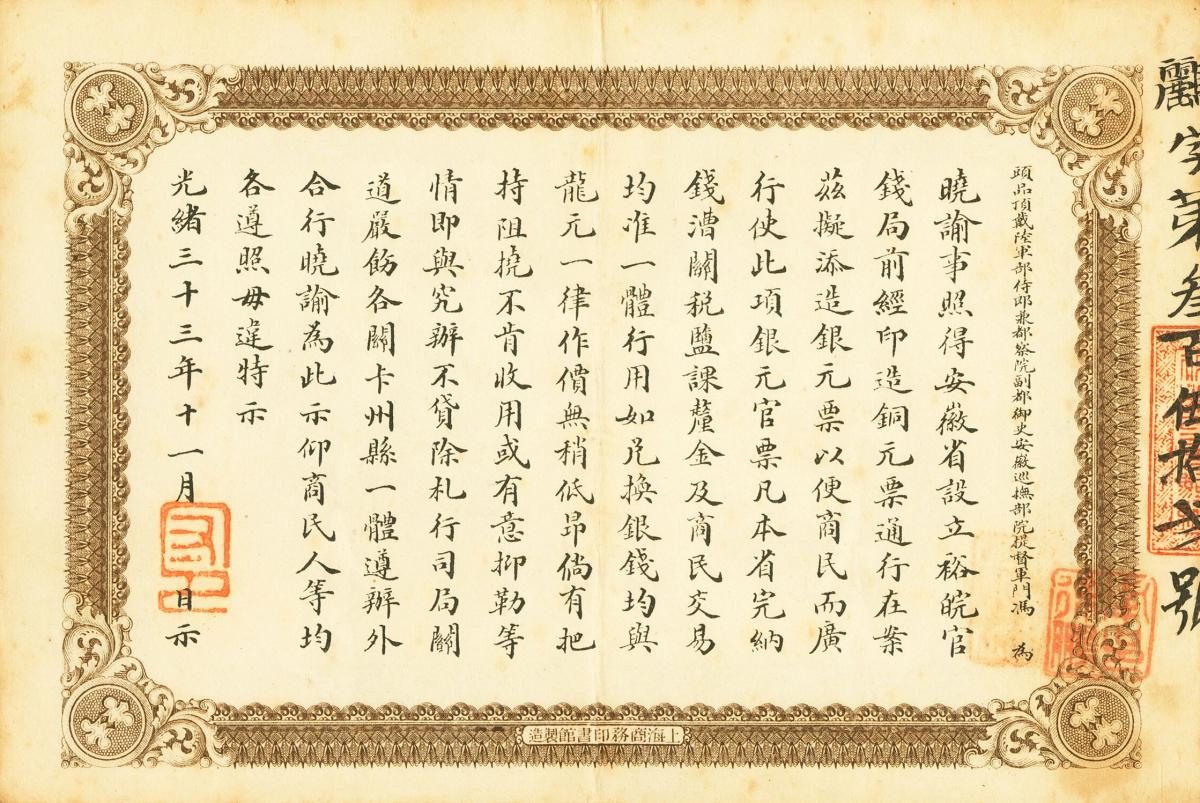 字第叁百伍拾
頭品頂戴陸軍部侍郎兼都察院副都御史安徽巡撫部院提督軍門馮 為
曉諭事照得安徽省設立裕皖官
錢局前經印造銅元票通行在案
茲擬添造銀元票以便商民而廣
行使此項銀元官票凡本省完納
錢漕關税鹽課釐金及商民交易
均准一體行用如兑換銀錢均與
龍元一律作價無稍低昂倘有把
持阻撓不肯收用或有意抑勒等
情即與究辦不貸除札行司局關
道嚴飭各關卡州縣一體遵辦外
合行曉諭為此示仰商民人等均
各遵照毋違特示
光緒三十三年十一月 日示
上海商務印書館製造